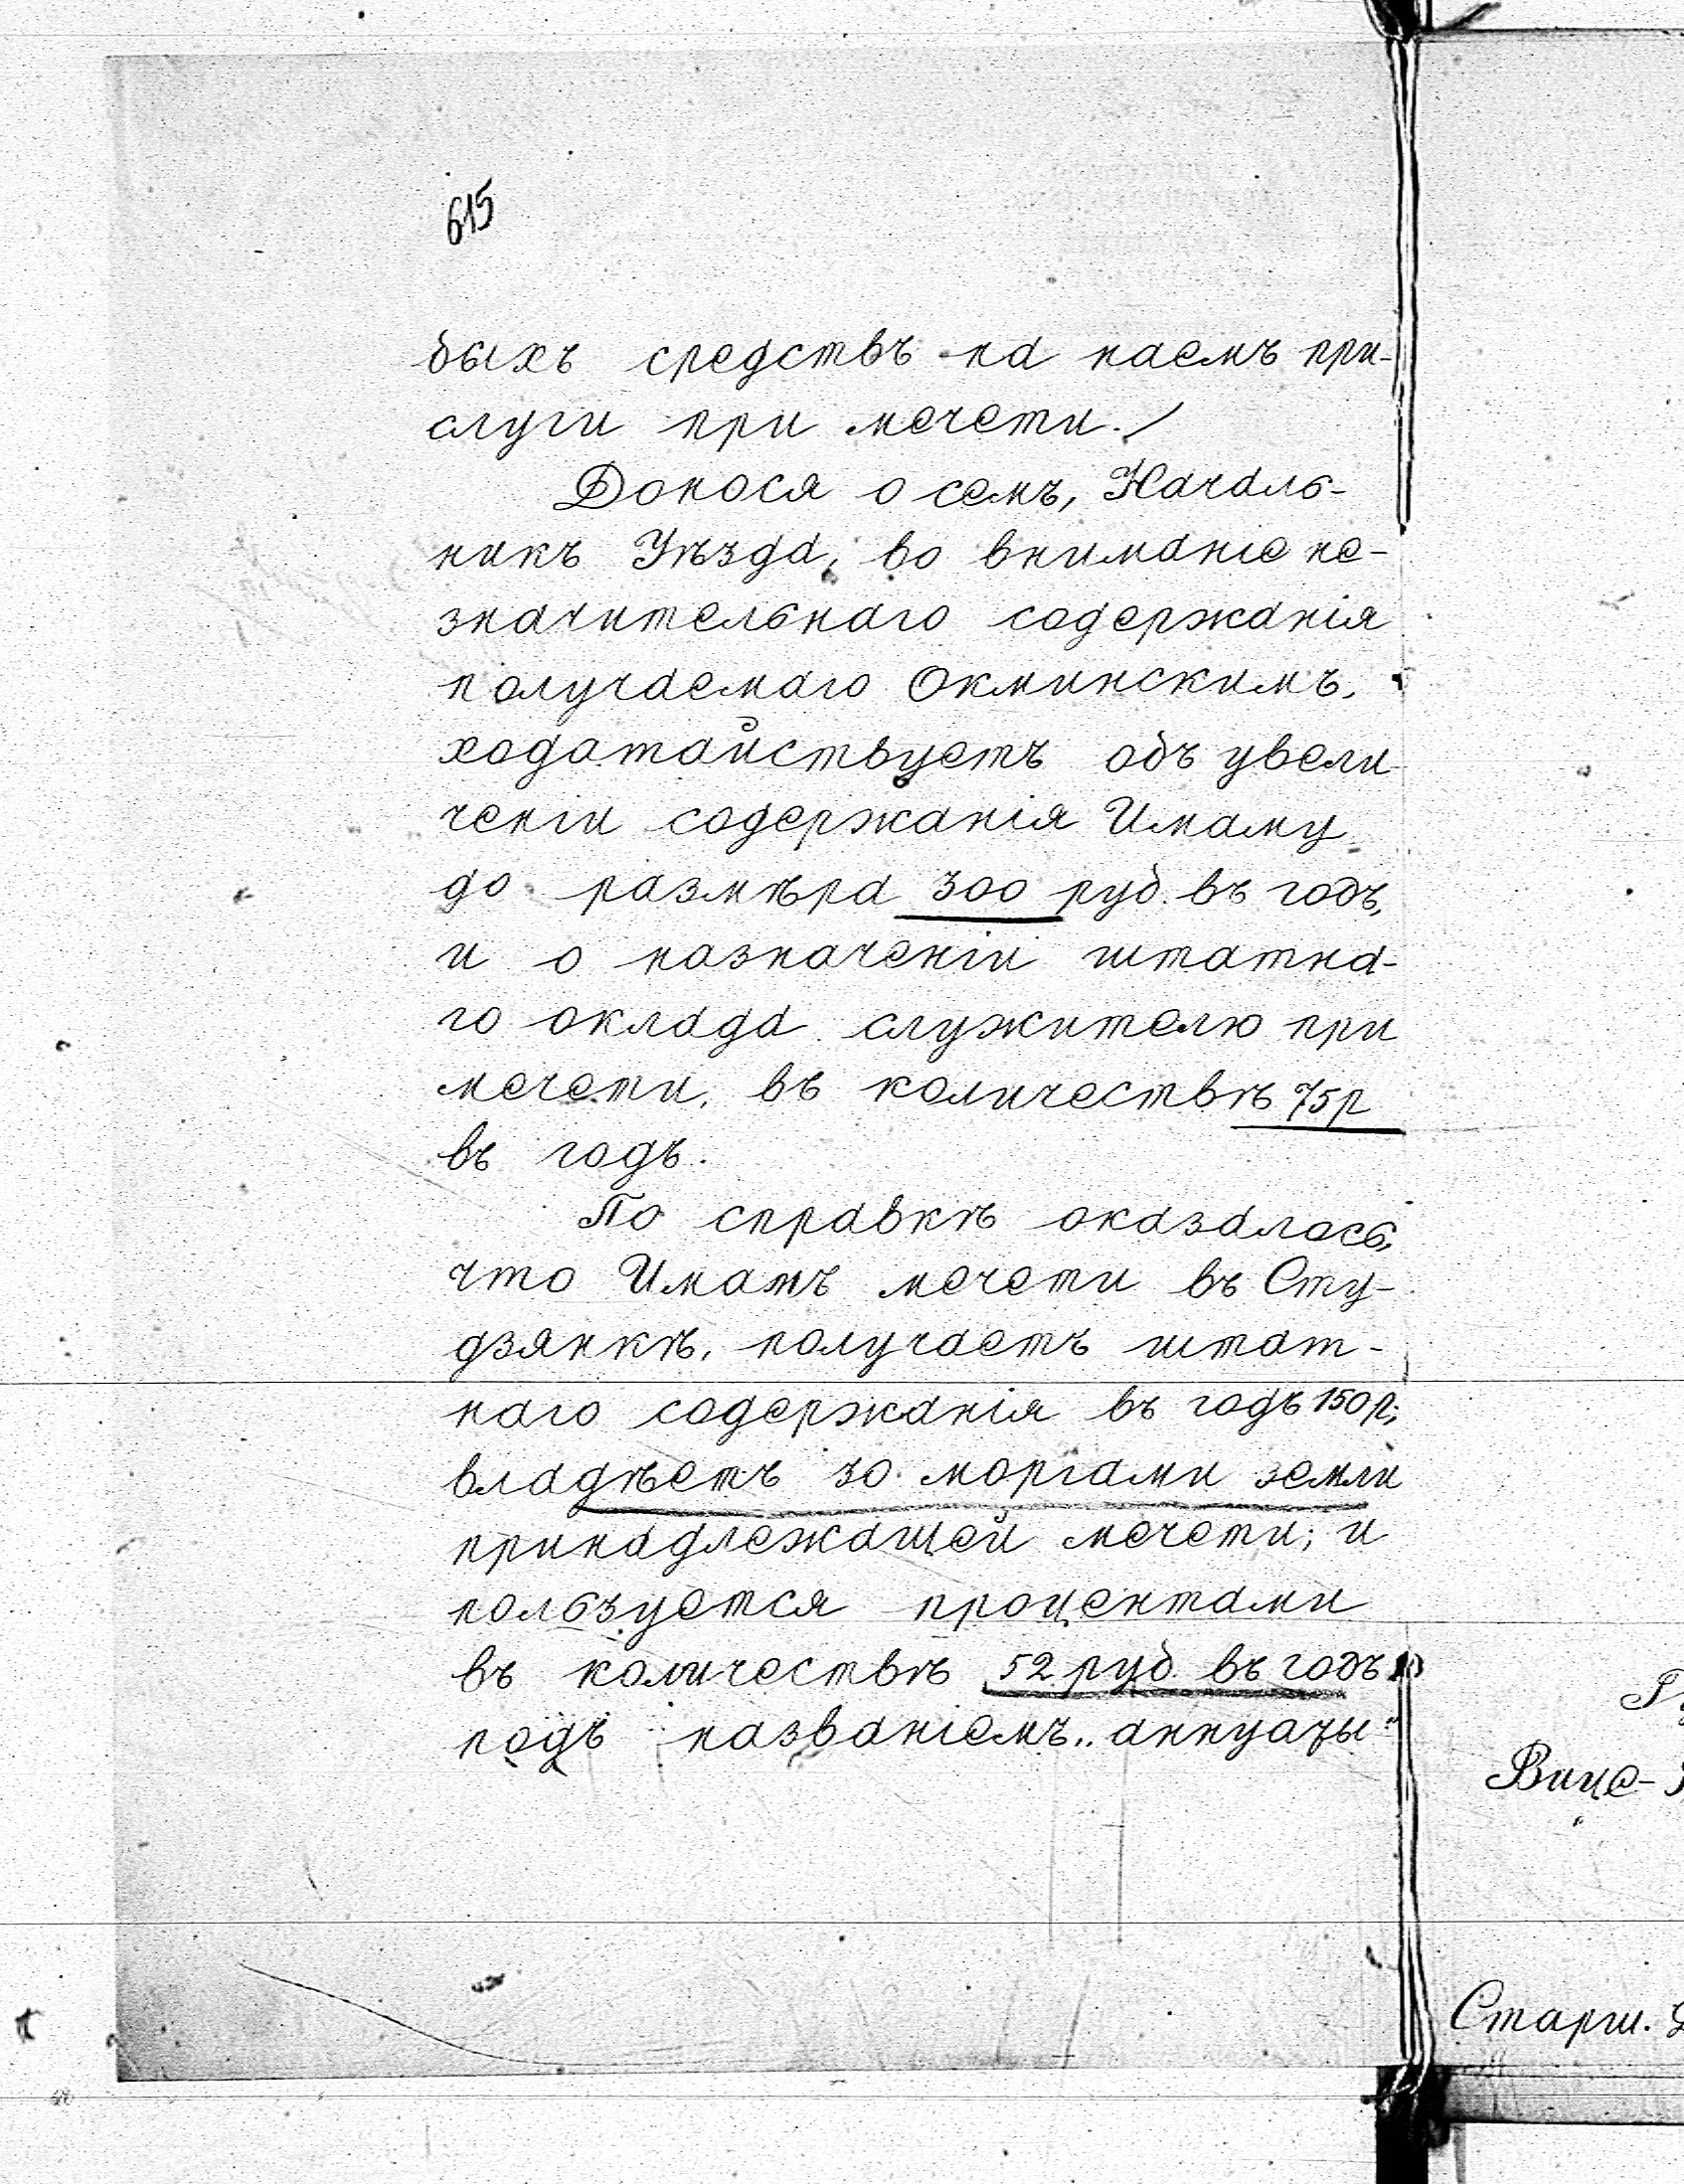 615
быхъ средствъ на наемъ при-
слуги при мечети.
Донося о семъ, Началь-
никъ Уѣзда, во вниманіе не-
значительнаго содержанія
получаемаго Окминскимъ,
ходатайствуетъ объ увели-
ченіи содержанія Имаму
до размѣра 300 руб. въ годъ,
и о назначеніи штатна-
го оклада служителю при
мечети, въ количествѣ 75р
въ годъ.
По справкѣ оказалось,
что Имамъ мечети въ Сту-
дзянкѣ, получаетъ штат-
наго содержанія въ годъ 150 р;
владѣетъ 30 моргами земли
принадлежащей мечети; и
пользуется процентами
въ количествѣ 52 руб. въ годъ
подъ названіемъ „аннуаты"
Вице-
Старш.